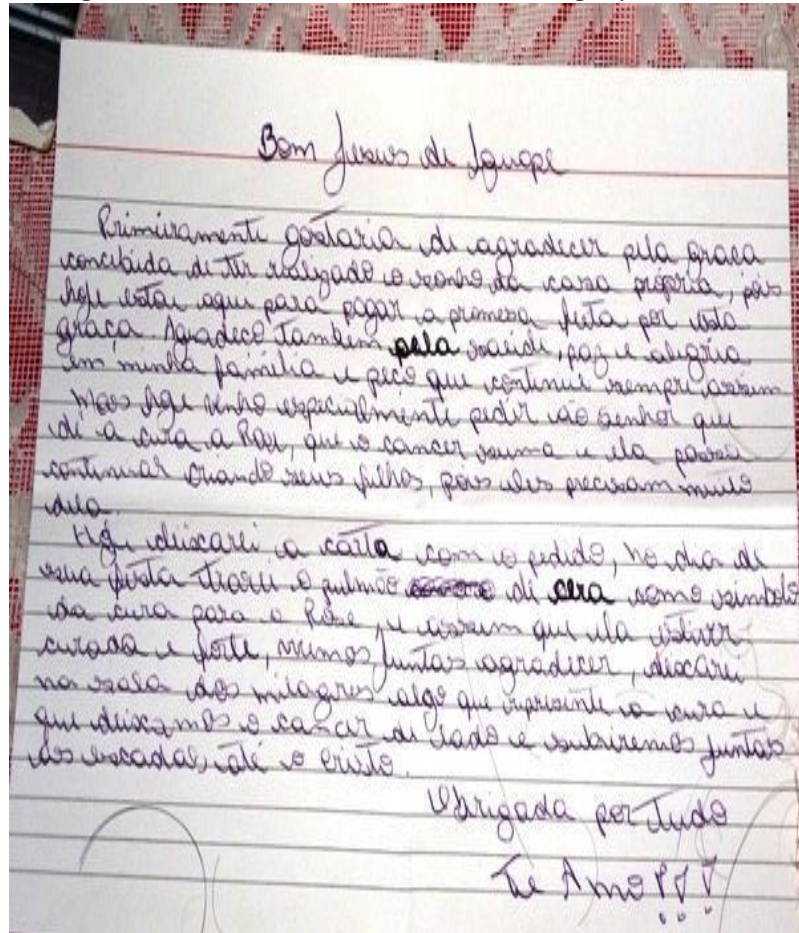 Bom Jesus de Iguape
Primeiramente gostaria de agradecer pela graça
concebida de ter realizado o sonho da casa própria, pois
hoje estou aqui para pagar a promessa feita por esta
graça. Agradeço também pela saúde, paz e alegria
em minha família e peço que continue sempre assim
mas hoje venho especialmente pedir ao Senhor que
dê a cura a Rose, que o cancer suma e ela possa
continuar criando seus filhos, pois eles precisam muito
dela.
Hoje deixarei a carta com o pedido, no dia de
sua festa trarei o pulmão de cera como simbolo
da cura para a Rose, e assim que ela estiver
curada e forte, viremos juntas agradecer, deixarei
na sala dos milagres algo que represente a cura e
que deixamos o cancer de lado e subiremos juntas
as escadas até o Cristo.
Obrigada por tudo
Te Amo!!!